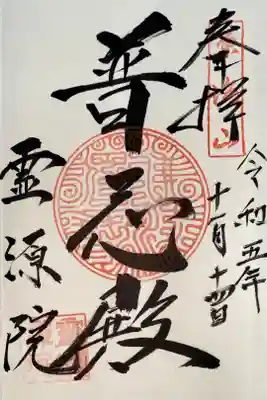 奉拝
令和五年
十一月十四日
普 殿
霊源院